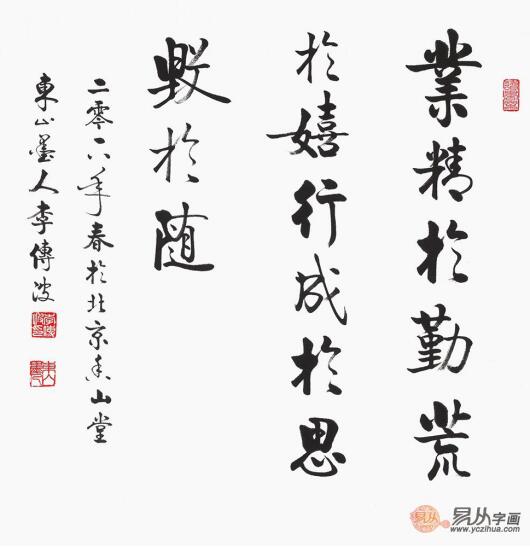 業精於勤荒
於嬉行成於思
毀於随
二零一六年春於北京香山堂
東山墨人李傳波
易从字画
www.yczihua.com